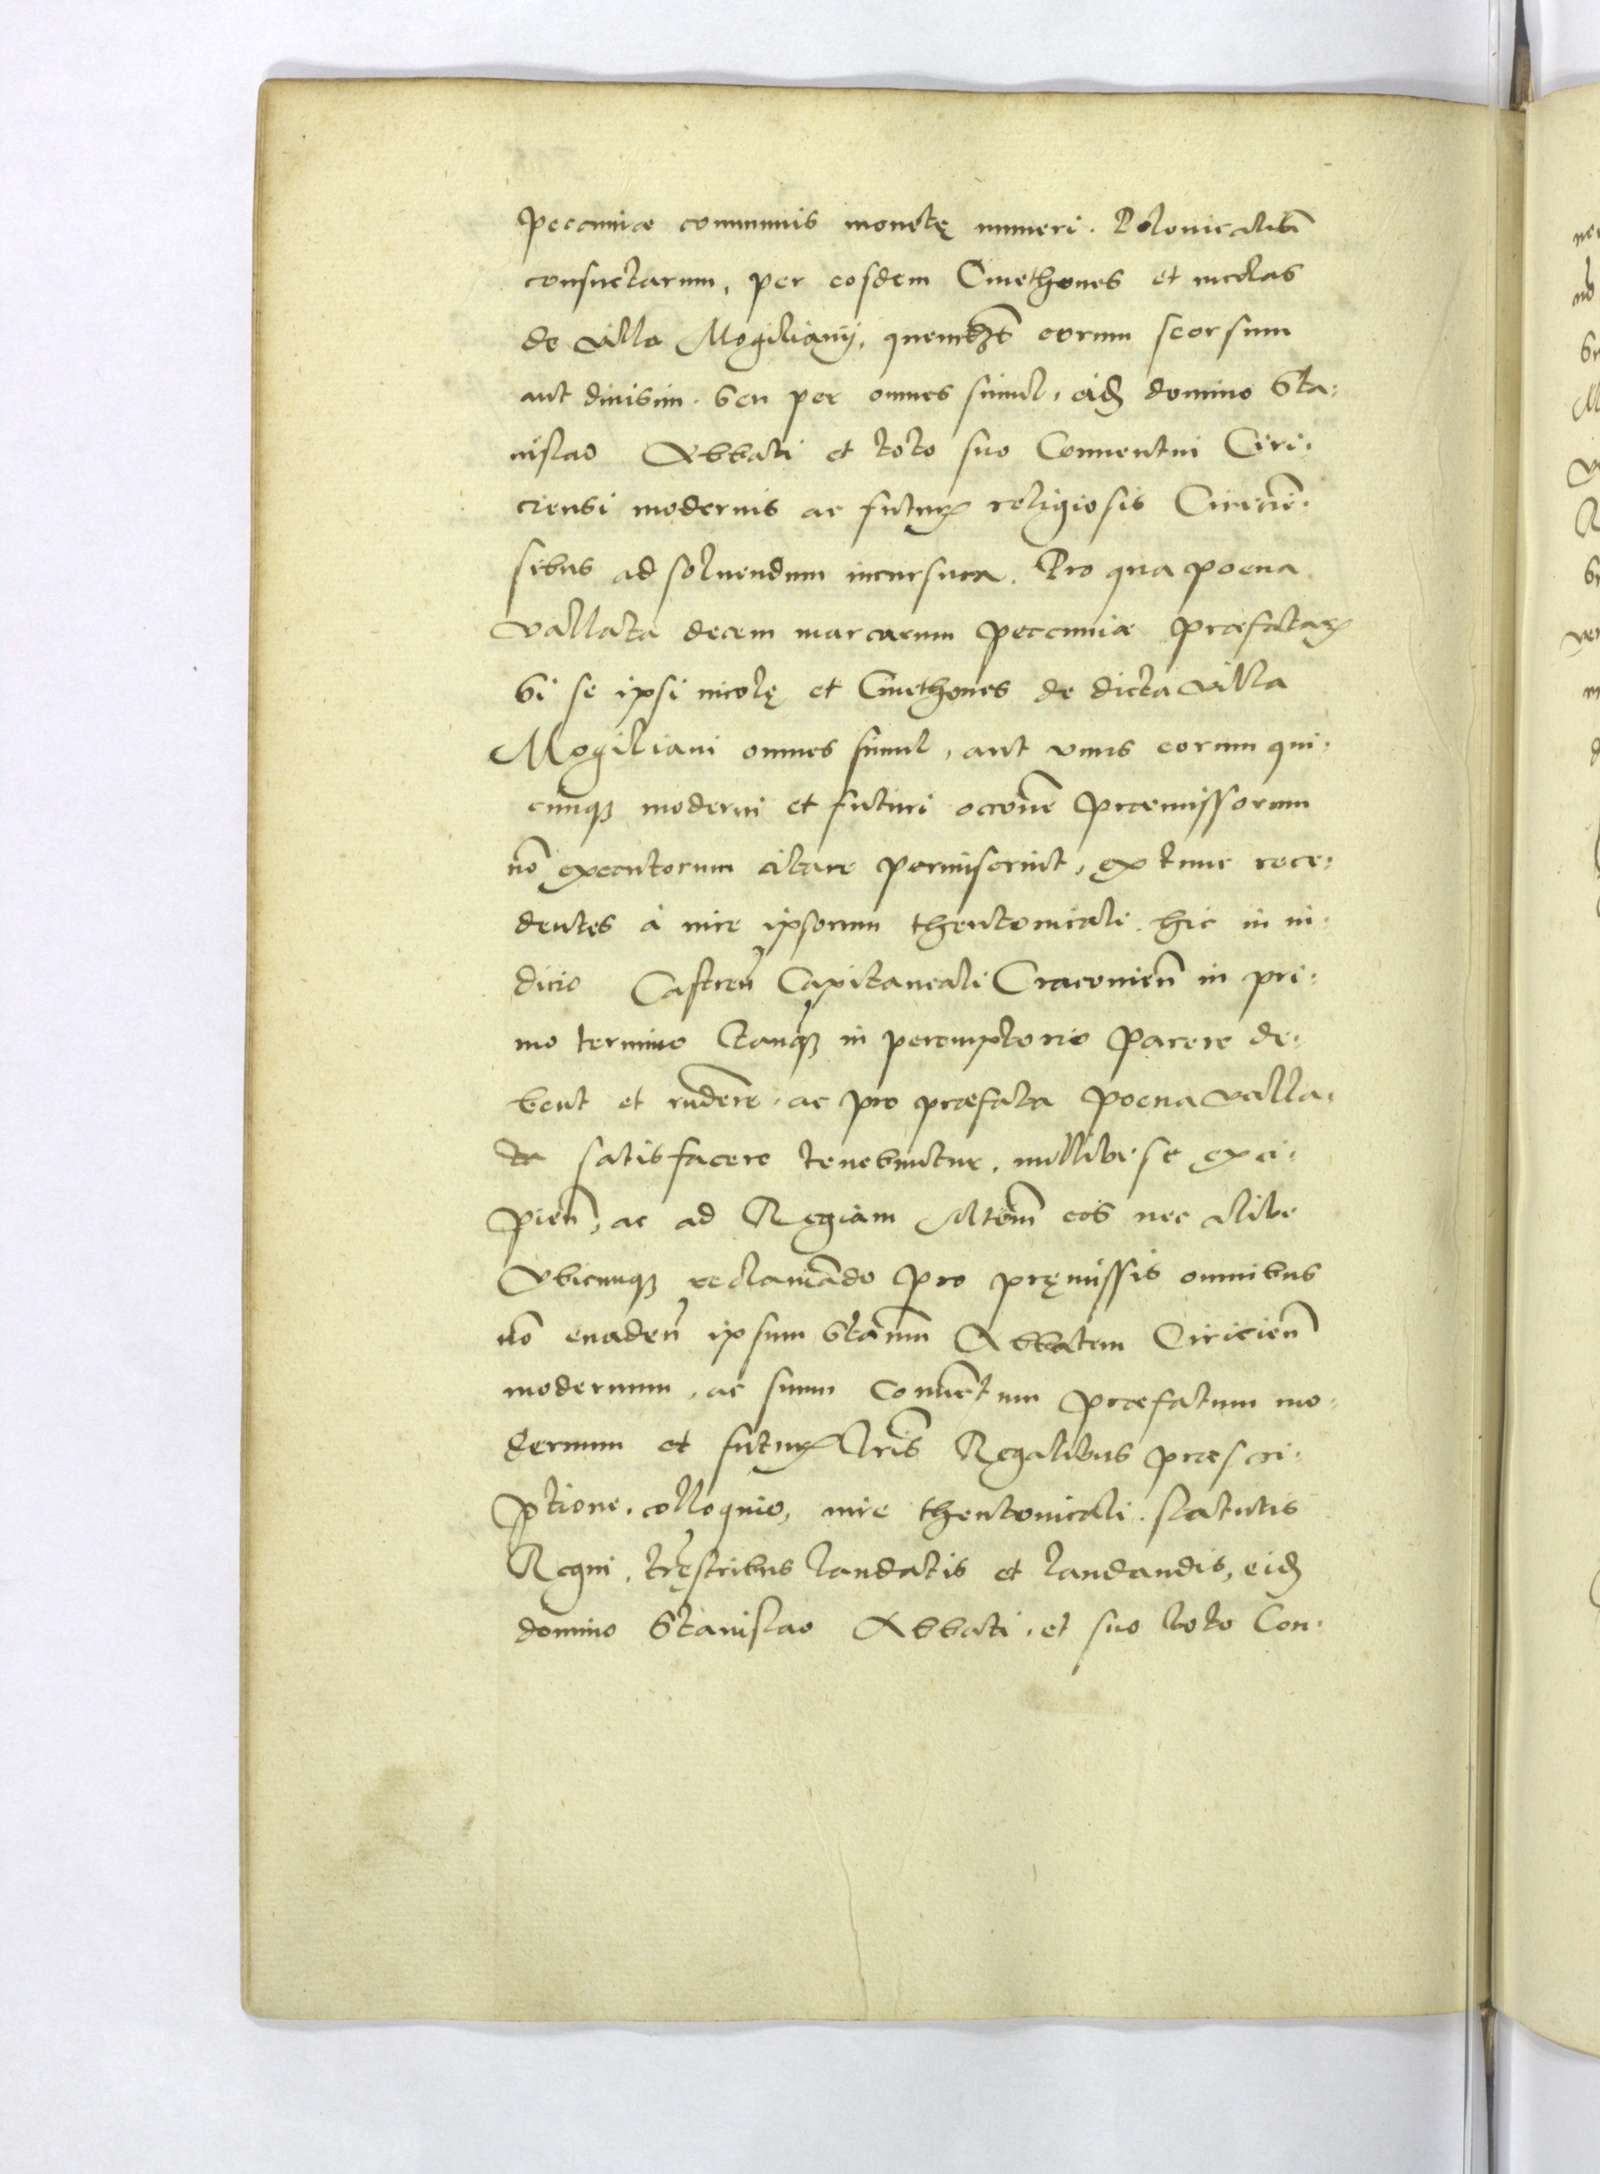 pecuniæ communis monetę numeri. Polonicalibꝰ
consuetarum, per eosdem Cmethones et incolas
de villa Mogilianij, quemlibet eorum seorsum
aut diuisim. Seu per omnes simul, eidē domino Sta:
nislao Abbati et toto suo Conuentui Ciri:
ciensi modernis ac futurꝝ religiosis Ciricieñ:
sibus ad soluendum incursura. Pro qua poena
vallata decem marcarum pecuniæ præfatarꝝ
Si se ipsi incolę et Cmethones de dicta villa
Mogiliani omnes simul, aut vnus eorum qui:
cunqꝫ moderni et futuri occōne præmissorum
nō executorum citare permiserint, ex tunc rece:
dentes à iure ipsorum theutonicali hic in iu:
dicio Castreñ Capitaneali Cracouieñ in pri:
mo termino tanqꝫ in peremptorio parere de:
bent et rndere, ac pro præfata poena valla:
ta satisfacere tenebuntur, nullibi se exci:
pieñ, ac ad Regiam Mtem eos nec alibi
Vbicunqꝫ reclamādo pro pręmissis omnibus
nō euadeñ ipsum Stanm Abbatem Ciricieñ
modernum, ac suum Conuētum præfatum mo:
dernum et futurꝝ lris Regalibus præscri:
ptione, colloquio, iure theutonicali, statutis
Regni, tręstribus laudatis et laudandis, eidē
domino Stanislao Abbati, et suo toto Con: